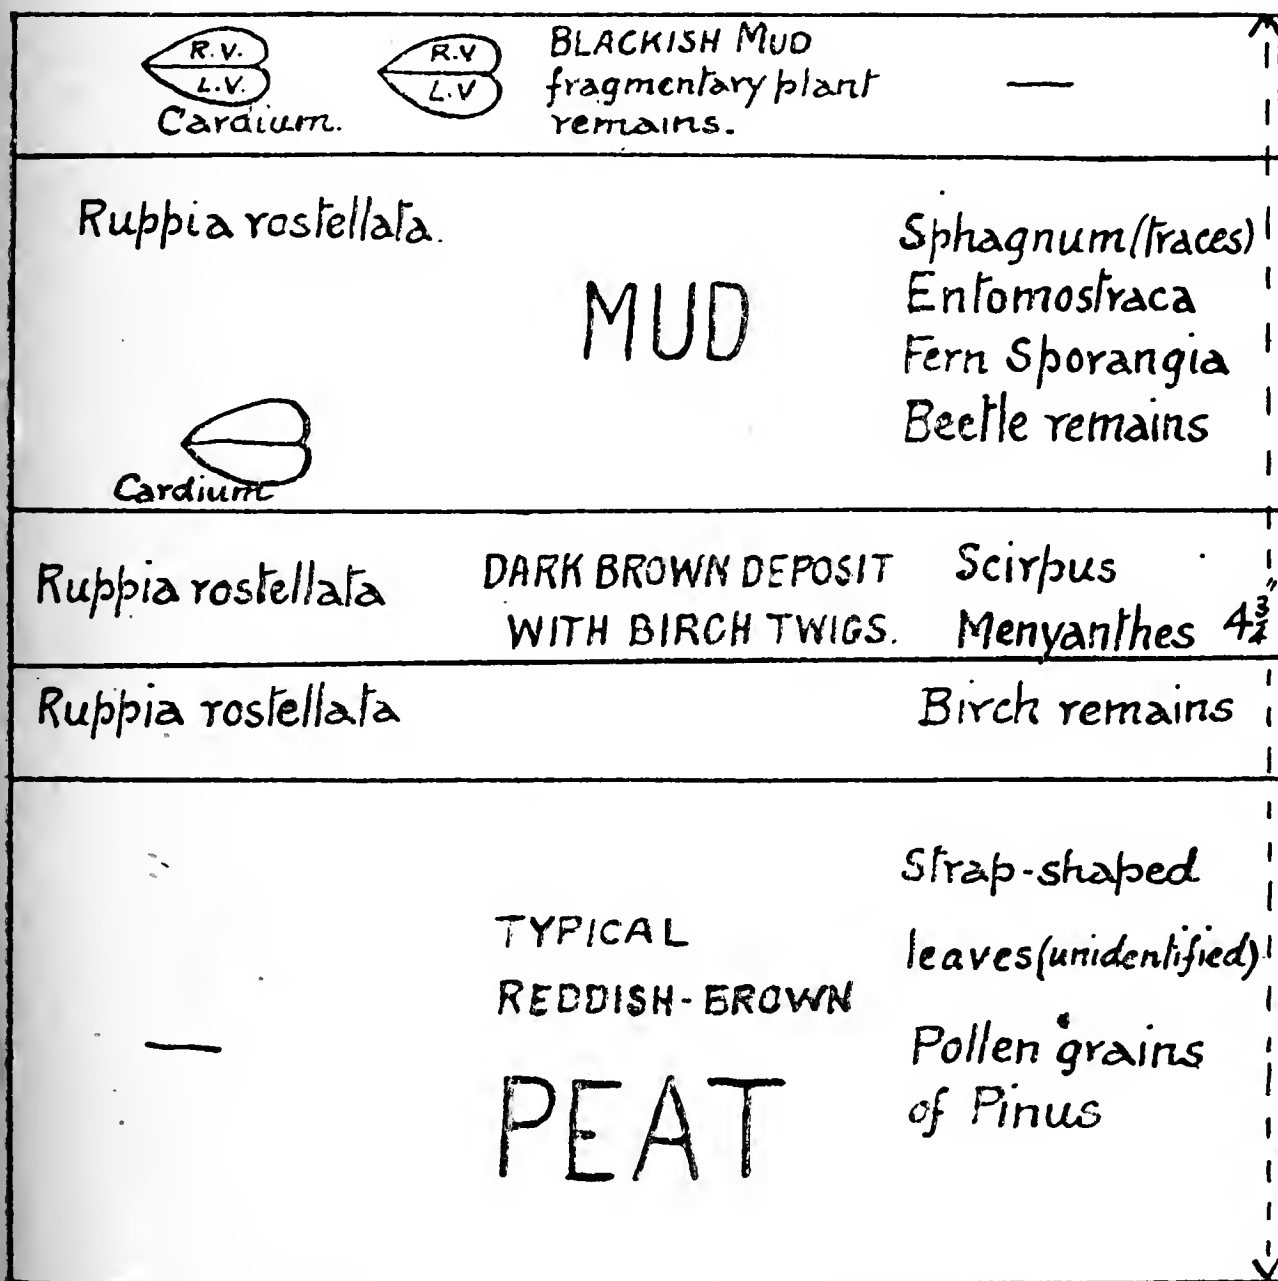 R.V.
L.V.
Cardium.
R.V
L.V
BLACKISH MUD
fragmentary plant
remains.
—
Ruppia rostellata.
MUD
Sphagnum (traces)
Entomostraca
Fern Sporangia
Beetle remains
Cardium
Ruppia rostellata
DARK BROWN DEPOSIT
WITH BIRCH TWIGS.
Scirpus
Menyanthes
4¾"
Ruppia rostellata
Birch remains
—
TYPICAL
REDDISH-BROWN
PEAT
Strap-shaped
leaves (unidentified)
Pollen grains
of Pinus